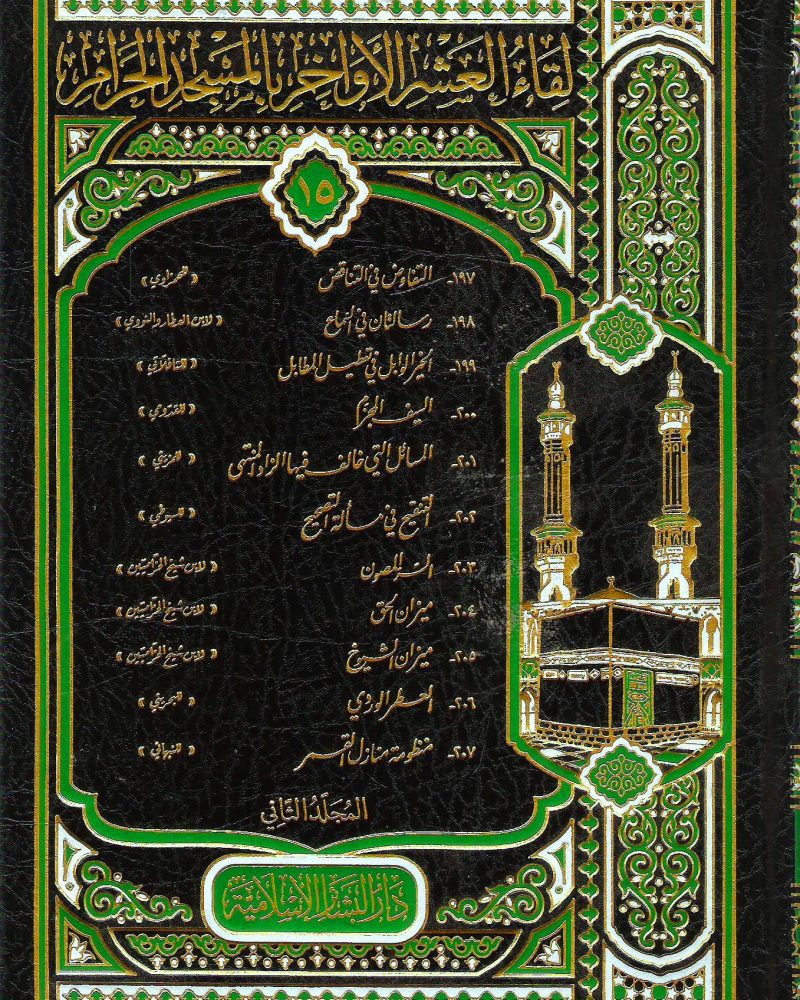 لقاء العشر الأواخر بالمسجد الحرام
١٥
١٩٧- التفاوض في التناقض «للحمزاوي»
١٩٨- رسالتان في السماع «لابن العطار والنووي»
١٩٩- الخير الوابل في «للتافلاتي»
٢٠٠- السيف المجزم
٢٠١- المسائل التي خالف فيها الزاد المنتهى
٢٠٢- التنقيح في مسألة التصحيح «للسيوطي»
٢٠٣- السر المصون «لابن شيخ الحزاميين»
٢٠٤- ميزان الحق «لابن شيخ الحزاميين»
٢٠٥- ميزان الشيوخ «لابن شيخ الحزاميين»
٢٠٦- العطر الوردي
٢٠٧- منظومة منازل القمر «للنبهاني»
المجلد الثاني
دار البشائر الإسلامية